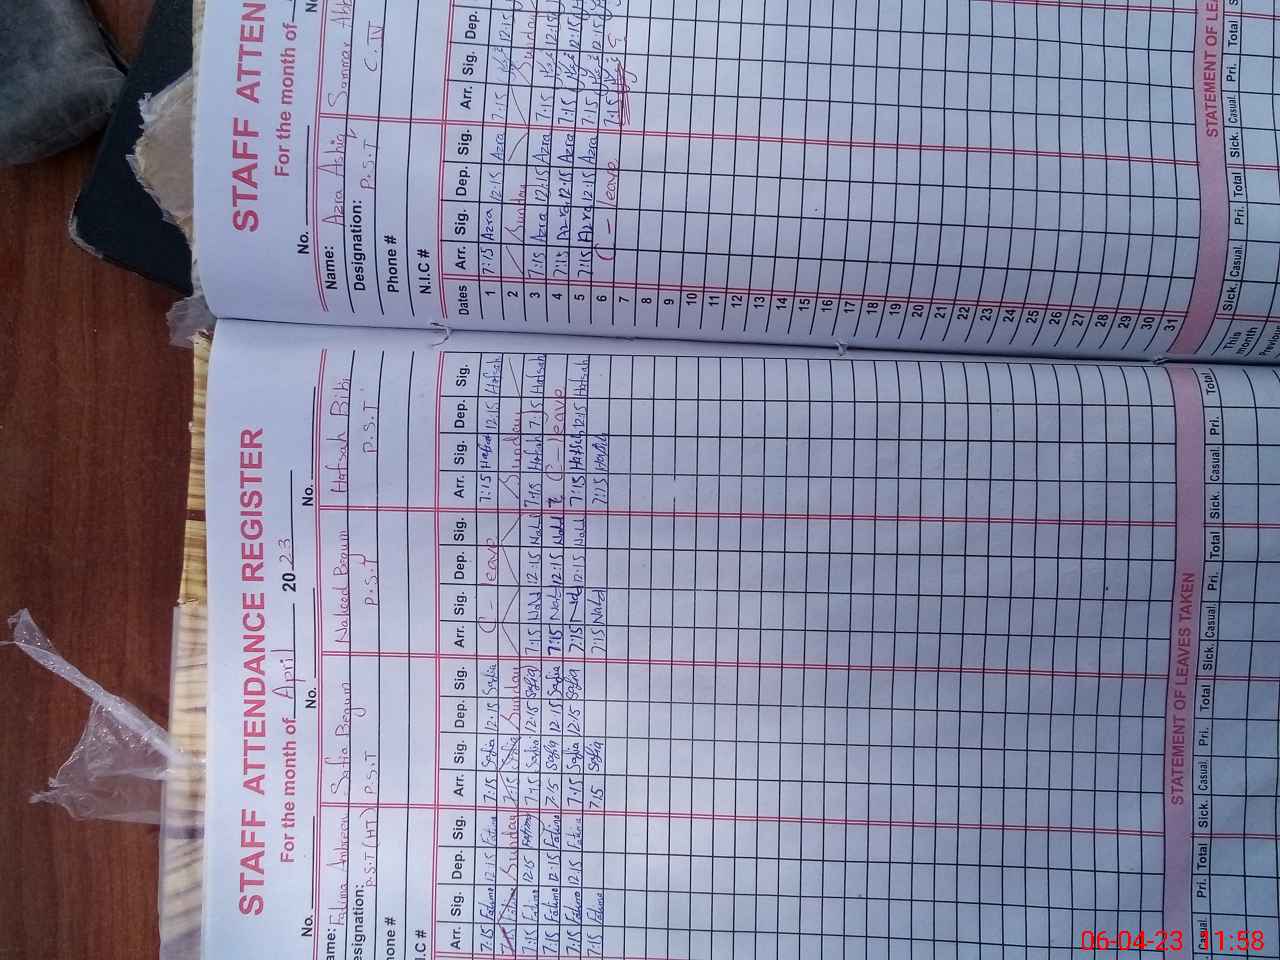 STAFF ATTENDANCE REGISTER
For the month of April 2023
No. No. No.
ame: Fatima Ambreen Safia Begum Naheed Begum Hafsah Bibi
esignation: P.S.T (HT) P.S.T P.S.T P.S.T
hone #
I.C #
Arr. Sig. Dep. Sig. Arr. Sig. Dep. Sig. Arr. Sig. Dep. Sig. Arr. Sig. Dep. Sig.
7:15 Fatima 12:15 Fatima 7:15 Safia 12:15 Safia C - leave 7:15 Hafsah 12:15 Hafsah
Fatima Sunday 7:15 Safia Sunday Sunday
7:15 Fatima 12:15 Fatima 7:15 Safia 12:15 Safia 7:15 Nahd 12:15 Nahd 7:15 Hafsah 7:15 Hafsah
7:15 Fatima 12:15 Fatima 7:15 Safia 12:15 Safia 7:15 Nahd 12:15 Nahd C - leave
7:15 Fatima 12:15 Fatima 7:15 Safia 12:15 Safia 7:15 Nahd 12:15 Nahd 7:15 Hafsah 12:15 Hafsah
7:15 Fatima 7:15 Safia 7:15 Nahd 7:15 Hafsah
STATEMENT OF LEAVES TAKEN
Casual. Pri. Total Sick. Casual. Pri. Total Sick. Casual. Pri. Total Sick. Casual. Pri. Total
STAFF ATTEN
For the month of
No. No
Name: Azra Ashiq Sammar Abb
Designation: P.S.T C.IV
Phone #
N.I.C #
Dates Arr. Sig. Dep. Sig. Arr. Sig. Dep.
1 7:15 Azra 12:15 Azra 7:15 12:15
2 Sunday Sunday
3 7:15 Azra 12:15 Azra 7:15 12:15
4 7:15 Azra 12:15 Azra 7:15 12:15
5 7:15 Azra 12:15 Azra 7:15 12:15
6 C - leave 7:15
7
8
9
10
11
12
13
14
15
16
17
18
19
20
21
22
23
24
25
26
27
28
29
30
31
STATEMENT OF LEA
This month Sick. Casual. Pri. Total Sick. Casual. Pri. Total
Previous
06-04-23 11:58